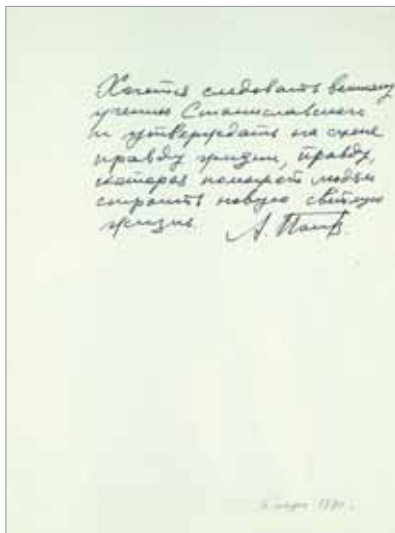 Хочется следовать великому
учению Станиславского
и утверждать на сцене
правду жизни, правду,
которая помогает людям
строить новую светлую
жизнь. А. Попов